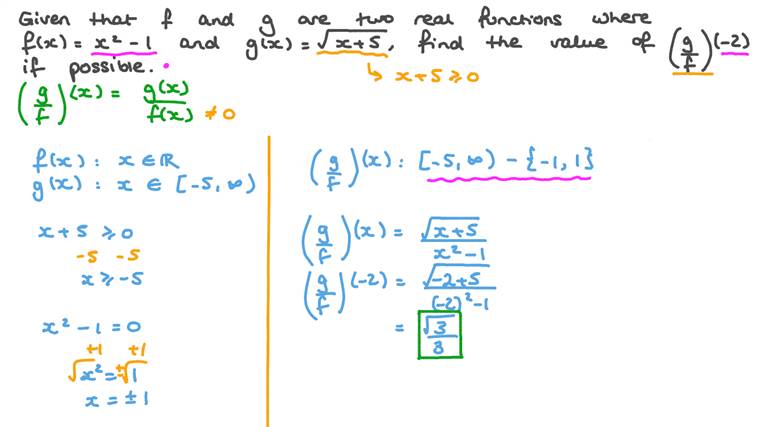 Given that f and g are two real functions where
f(x) = x² - 1 and g(x) = √(x+5), find the value of (g/f)(-2)
if possible.
↳ x+5 ≥ 0
(g/f)(x) = g(x)/f(x) ≠ 0
f(x) : x ∈ ℝ
g(x) : x ∈ [-5, ∞)
x + 5 ≥ 0
-5 -5
x ≥ -5
x² - 1 = 0
+1 +1
√x² = ±√1
x = ±1
(g/f)(x) : [-5, ∞) - {-1, 1}
(g/f)(x) = √(x+5)/(x² - 1)
(g/f)(-2) = √(-2+5)/((-2)² - 1)
= √3/3